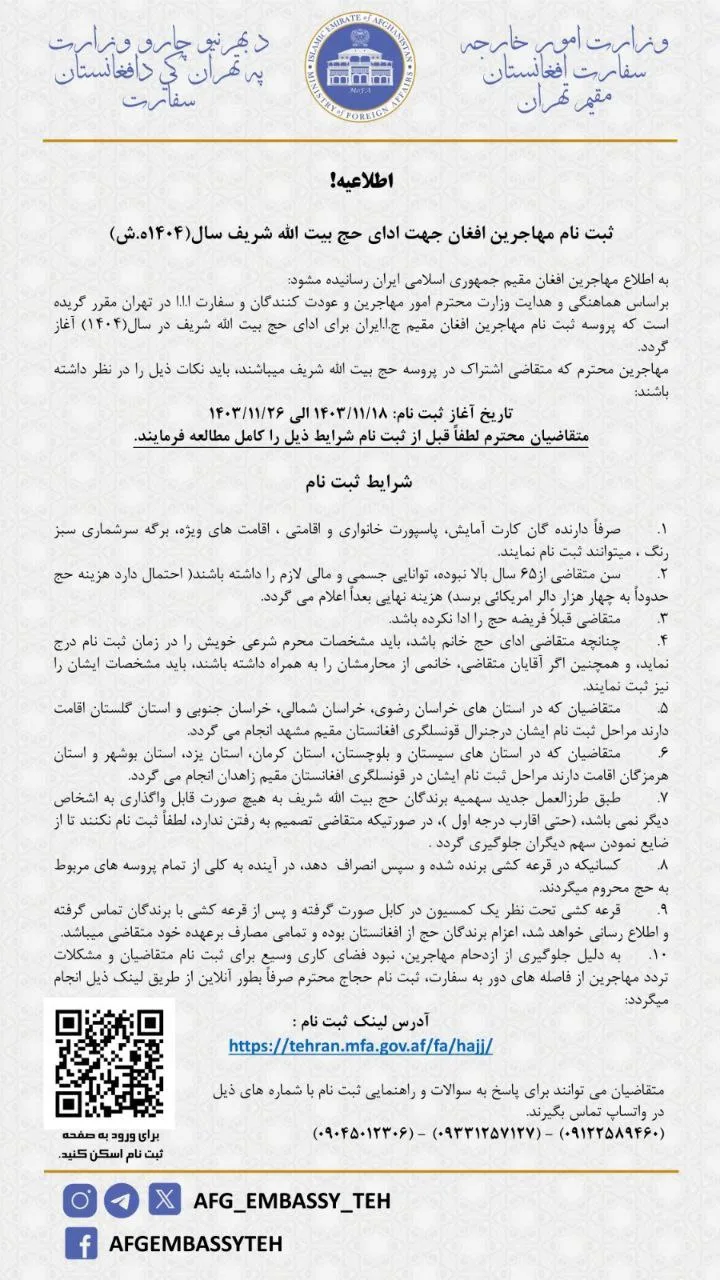 د بهرنیو چارو وزارت
په تهران کي دافغانستان
سفارت
ISLAMIC EMIRATE of AFGHANISTAN
MoFA
MINISTRY of FOREIGN AFFAIRS
وزارت امور خارجه
سفارت افغانستان
مقیم تهران
اطلاعیه!
ثبت نام مهاجرین افغان جهت ادای حج بیت الله شریف سال(۱۴۰۴ه.ش)
به اطلاع مهاجرین افغان مقیم جمهوری اسلامی ایران رسانیده مشود:
براساس هماهنگی و هدایت وزارت محترم امور مهاجرین و عودت کنندگان و سفارت ا.ا.ا در تهران مقرر گریده
است که پروسه ثبت نام مهاجرین افغان مقیم ج.ا.ایران برای ادای حج بیت الله شریف در سال(۱۴۰۴) آغاز
گردد.
مهاجرین محترم که متقاضی اشتراک در پروسه حج بیت الله شریف میباشند، باید نکات ذیل را در نظر داشته
باشند:
تاریخ آغاز ثبت نام: ۱۴۰۳/۱۱/۱۸ الی ۱۴۰۳/۱۱/۲۶
متقاضیان محترم لطفاً قبل از ثبت نام شرایط ذیل را کامل مطالعه فرمایند.
شرایط ثبت نام
۱. صرفاً دارنده گان کارت آمایش، پاسپورت خانواری و اقامتی ، اقامت های ویژه، برگه سرشماری سبز
رنگ ، میتوانند ثبت نام نمایند.
۲. سن متقاضی از۶۵ سال بالا نبوده، توانایی جسمی و مالی لازم را داشته باشند( احتمال دارد هزینه حج
حدوداً به چهار هزار دالر امریکائی برسد) هزینه نهایی بعداً اعلام می گردد.
۳. متقاضی قبلاً فریضه حج را ادا نکرده باشد.
۴. چنانچه متقاضی ادای حج خانم باشد، باید مشخصات محرم شرعی خویش را در زمان ثبت نام درج
نماید، و همچنین اگر آقایان متقاضی، خانمی از محارمشان را به همراه داشته باشند، باید مشخصات ایشان را
نیز ثبت نمایند.
۵. متقاضیان که در استان های خراسان رضوی، خراسان شمالی، خراسان جنوبی و استان گلستان اقامت
دارند مراحل ثبت نام ایشان درجنرال قونسلگری افغانستان مقیم مشهد انجام می گردد.
۶. متقاضیان که در استان های سیستان و بلوچستان، استان کرمان، استان یزد، استان بوشهر و استان
هرمزگان اقامت دارند مراحل ثبت نام ایشان در قونسلگری افغانستان مقیم زاهدان انجام می گردد.
۷. طبق طرزالعمل جدید سهمیه برندگان حج بیت الله شریف به هیچ صورت قابل واگذاری به اشخاص
دیگر نمی باشد، (حتی اقارب درجه اول )، در صورتیکه متقاضی تصمیم به رفتن ندارد، لطفاً ثبت نام نکنند تا از
ضایع نمودن سهم دیگران جلوگیری گردد .
۸. کسانیکه در قرعه کشی برنده شده و سپس انصراف دهد، در آینده به کلی از تمام پروسه های مربوط
به حج محروم میگردند.
۹. قرعه کشی تحت نظر یک کمسیون در کابل صورت گرفته و پس از قرعه کشی با برندگان تماس گرفته
و اطلاع رسانی خواهد شد، اعزام برندگان حج از افغانستان بوده و تمامی مصارف برعهده خود متقاضی میباشد.
۱۰. به دلیل جلوگیری از ازدحام مهاجرین، نبود فضای کاری وسیع برای ثبت نام متقاضیان و مشکلات
تردد مهاجرین از فاصله های دور به سفارت، ثبت نام حجاج محترم صرفاً بطور آنلاین از طریق لینک ذیل انجام
میگردد:
آدرس لینک ثبت نام :
https://tehran.mfa.gov.af/fa/hajj/
متقاضیان می توانند برای پاسخ به سوالات و راهنمایی ثبت نام با شماره های ذیل
در واتساپ تماس بگیرند.
(۰۹۱۲۲۵۸۹۴۶۰) – (۰۹۳۳۱۲۵۷۱۲۷) – (۰۹۰۴۵۰۱۲۳۰۶)
برای ورود به صفحه
ثبت نام اسکن کنید.
AFG_EMBASSY_TEH
AFGEMBASSYTEH